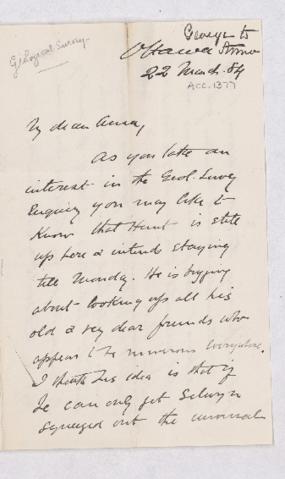 Geological Survey
George to
Ottawa
22 March. 84
ACC. 1377
My dear Anna,
As you take an
interest in the Geol. Survey
Enquiry you may like to
know that Hunt is still
up here & intends staying
till Monday. He is
about looking up all his
old & very dear friends who
appear to be numerous everywhere.
I think his idea is that if
he can only get Selwyn
squeezed out the universal